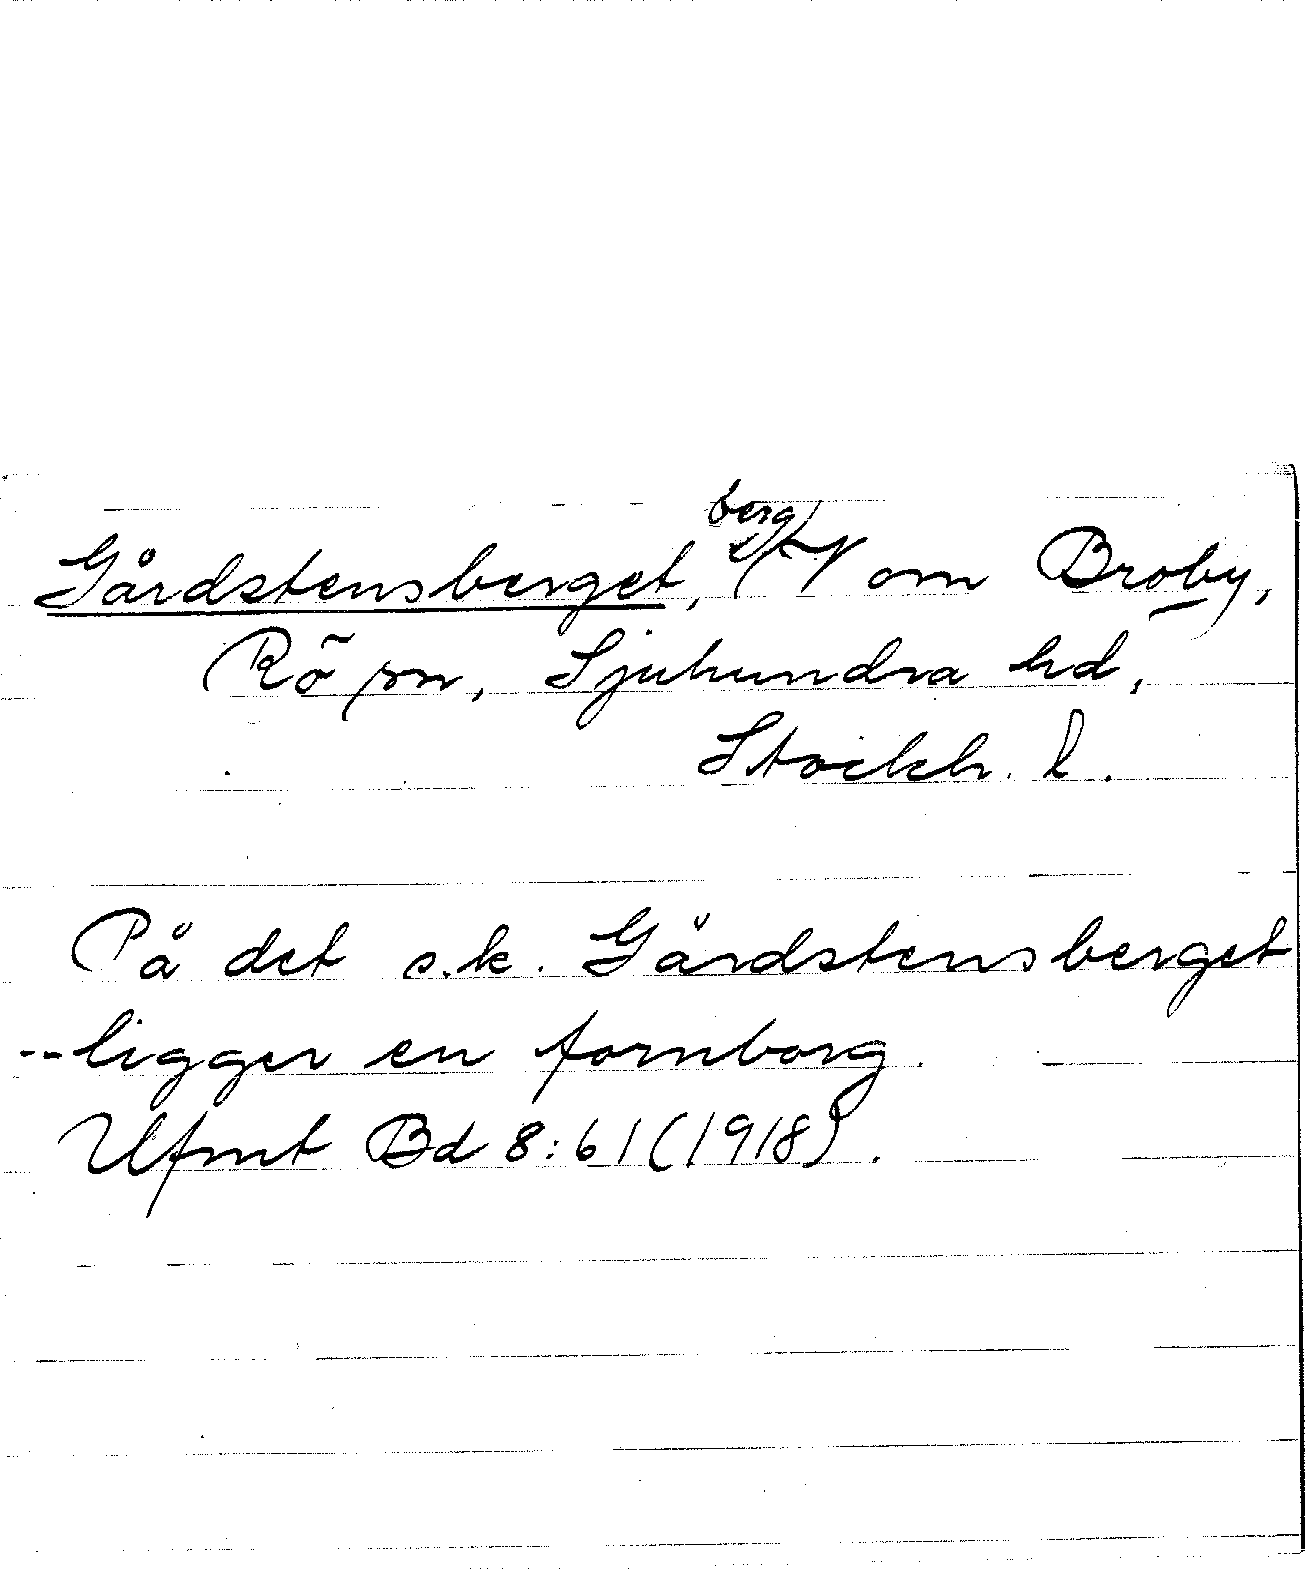 Gårdstensberget, berg V om Broby,
Rö sn, Sjuhundra hd,
Stockh. l.
På det s.k. Gårdstensberget
--ligger en fornborg.
Ufmt Bd 8:61(1918).